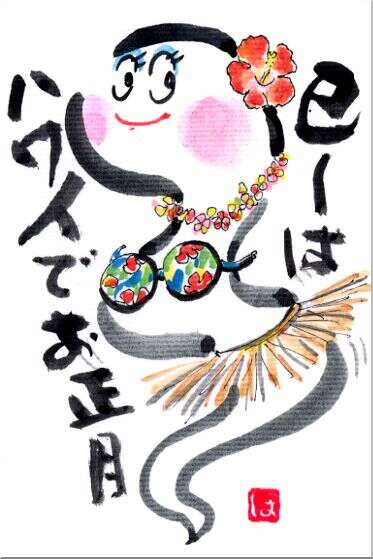 巳ーは
ハワイでお正月
は